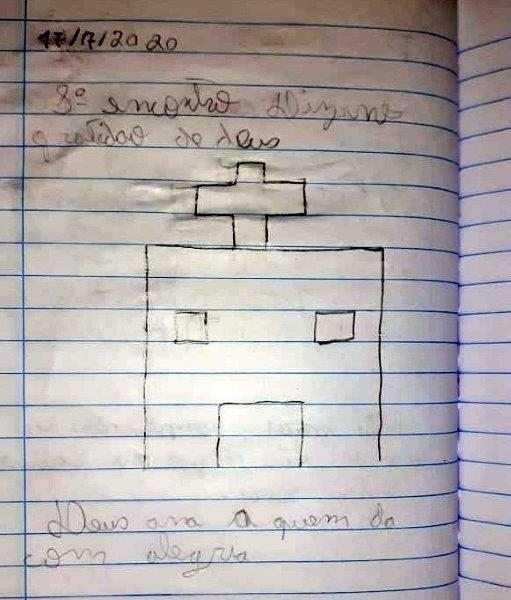 17/7/2020
3º encontro Dizimo
gratidão de deus
Deus ama a quem da
com alegria